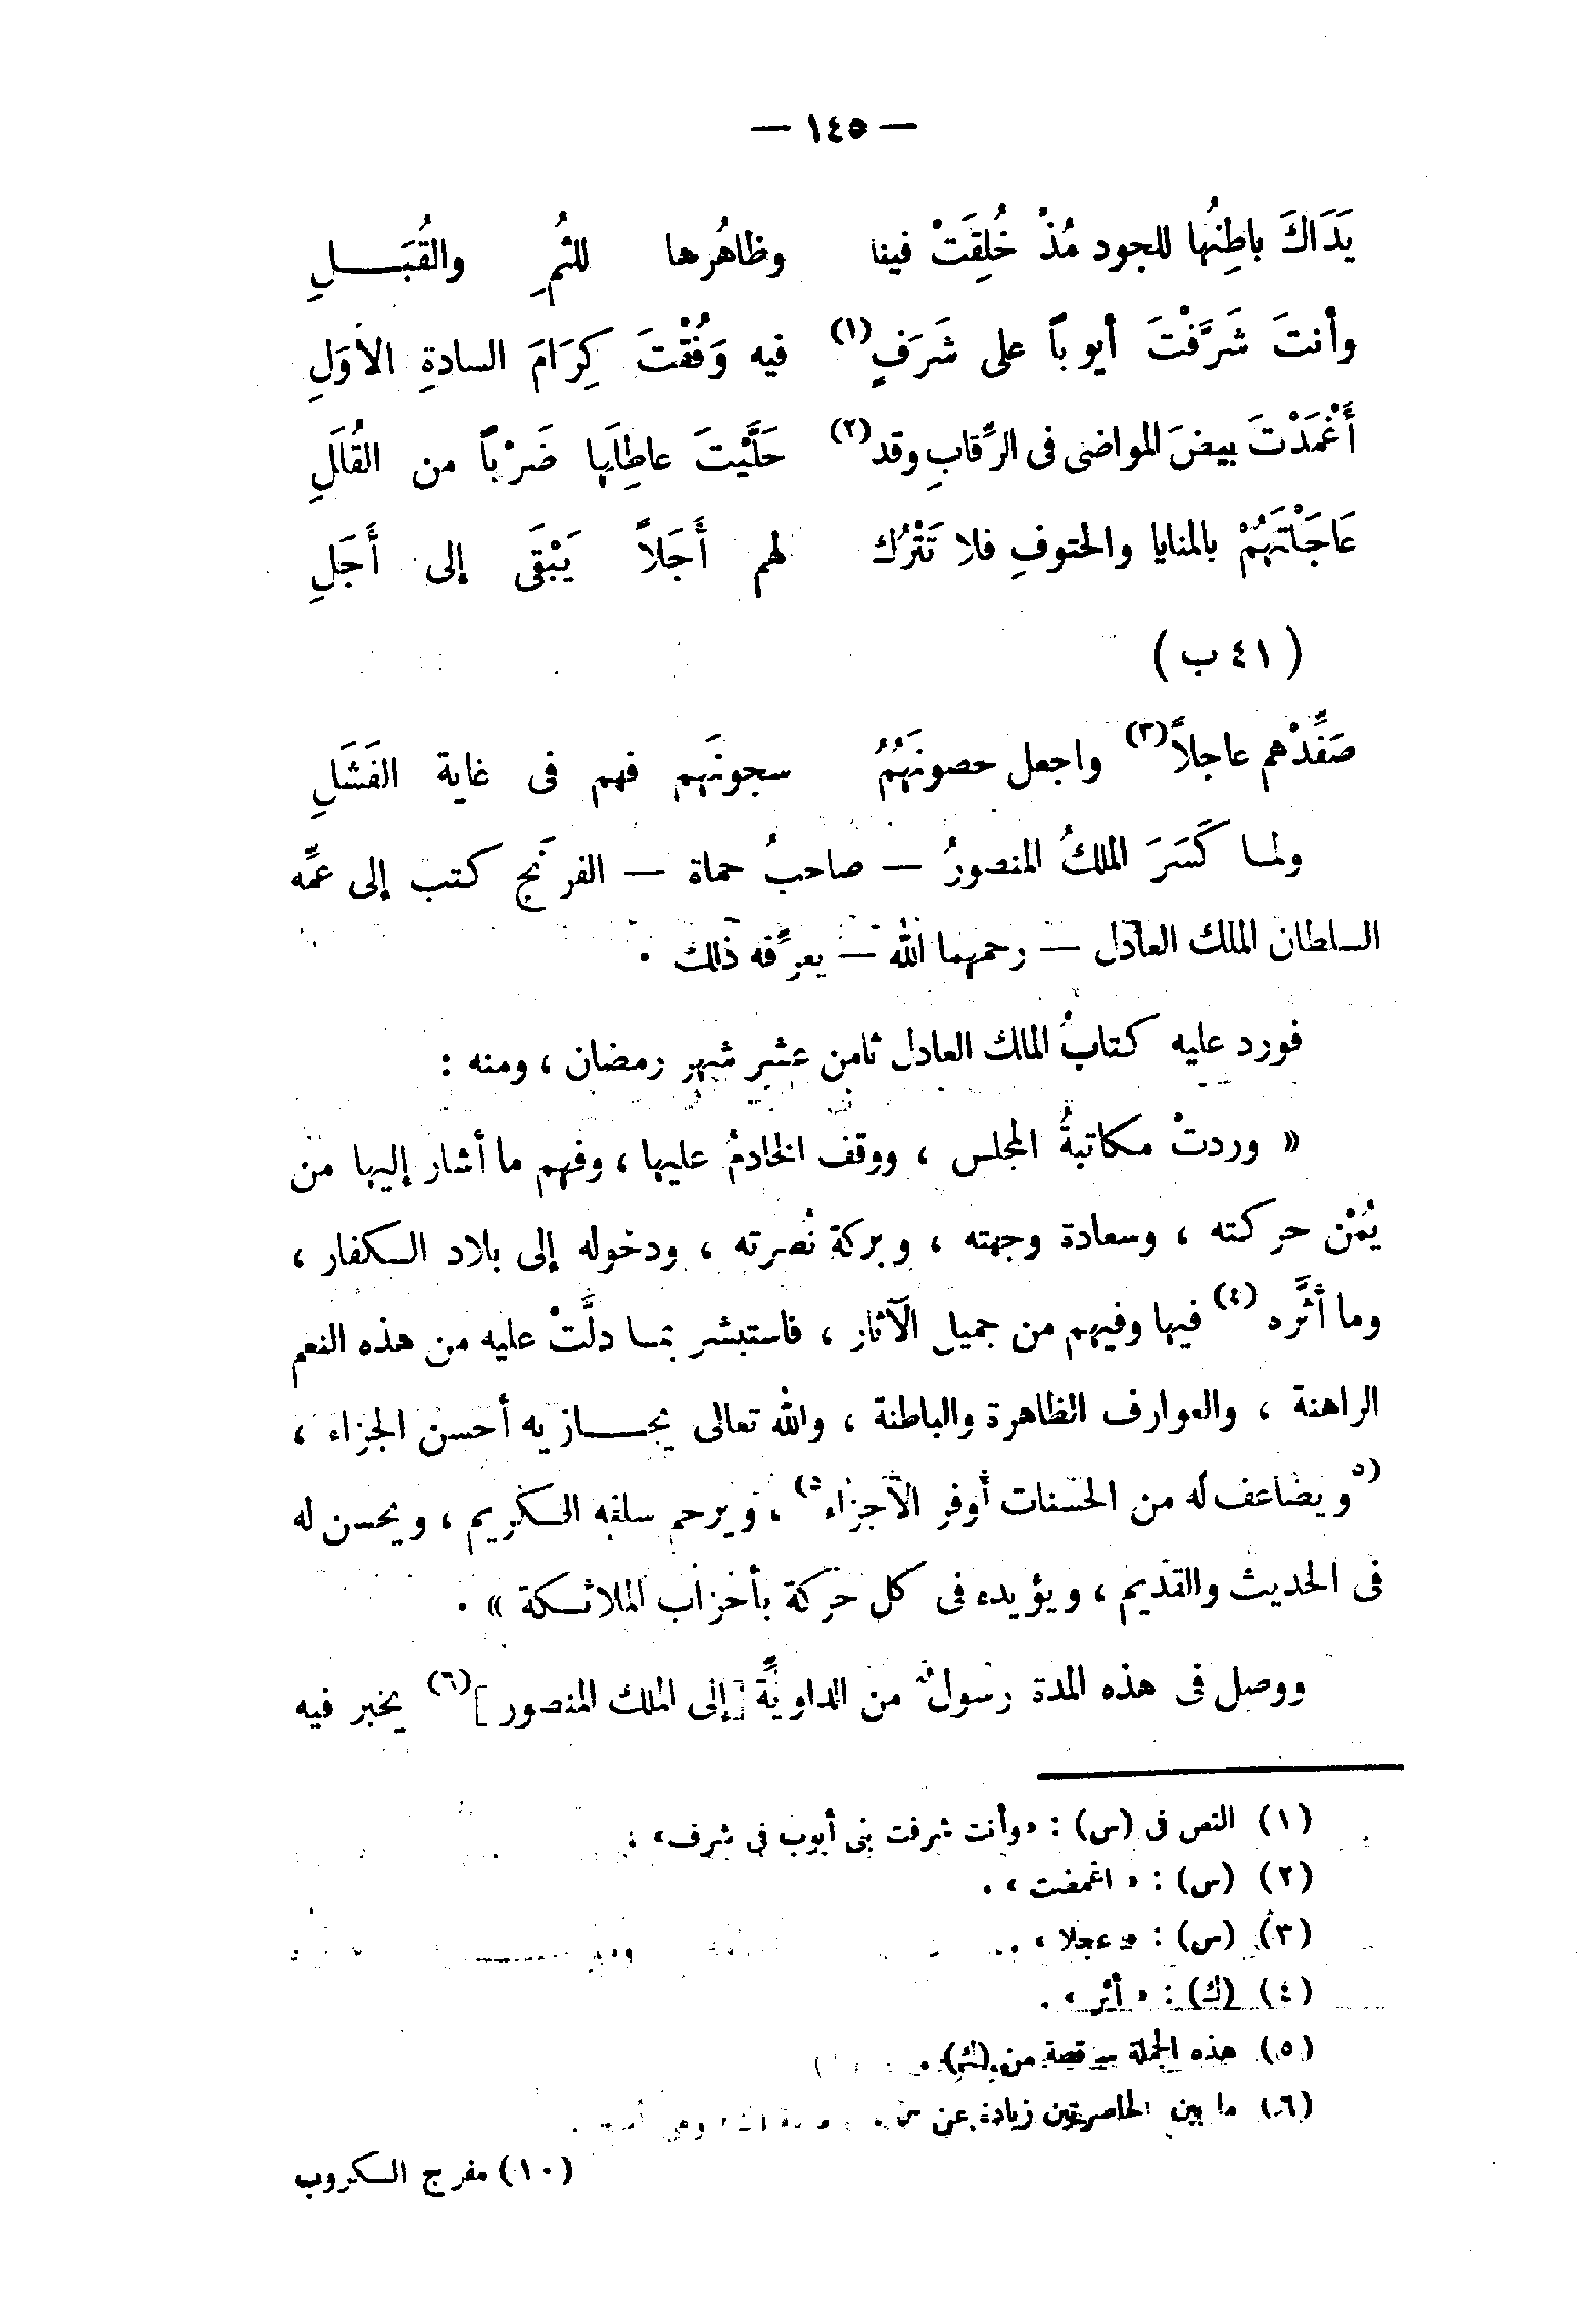 — ١٤٥ —
يَدَاكَ باطِنُها للجود مُذْ خُلِقَتْ فينا وظاهُرها للثمُِ والقُبَــلِ
وأنتَ شَرَّفْتَ أيوباً على شَرَفٍ (١) فيه وَفُقْتَ كِرَامَ السادةِ الأوَلِ
أَغْمَدْتَ بيضَ المواضى فى الرِّقابِ وقد (٢) حَلَّيْتَ عاطِلَها ضَرْباً من القُلَلِ
عَاجَلْتَهُمْ بالمنايا والحتوفِ فلا تَتْرُك لهم أَجَلاً يَبْقَى إلى أَجَلِ
(٤١ ب)
صَفِّدْهم عاجلاً (٣) واجعل حصونَهُمُ سجونَهم فهم فى غاية الفَشَلِ
ولمــا كَسَرَ الملكُ المنصورُ — صاحبُ حماة — الفرنَج كتب إلى عمِّه
السلطان الملك العادل — رحمهما الله — يعرِّفه ذلك .
فورد عليه كتابُ الملك العادل ثامن عشر شهر رمضان ، ومنه :
« وردتْ مكاتبةُ المجلس ، ووقف الخادمُ عليها ، وفهم ما أشار إليها من
يُمْن حركته ، وسعادة وجهته ، وبركة نُصرته ، ودخوله إلى بلاد الكفار ،
وما أثَّره (٤) فيها وفيهم من جميل الآثار ، فاستبشر بمــا دلَّتْ عليه من هذه النعم
الراهنة ، والعوارف الظاهرة والباطنة ، والله تعالى يجــازيه أحسن الجزاء ،
(٥ ويضاعف له من الحسنات أوفر الأجزاء ٥) ، ويرحم سلفه الكريم ، ويحسن له
فى الحديث والقديم ، ويؤيده فى كل حركة بأحزاب الملائكة » .
ووصل فى هذه المدة رسولٌ من الداويَّة [ إلى الملك المنصور ] (٦) يخبر فيه
(١) النص فى (س) : «وأنت شرفت بنى أيوب فى شرف» .
(٢) (س) : « اغمضت » .
(٣) (س) : « عجلا » .
(٤) (ك) : « أثر » .
(٥) هذه الجملة ناقصة من (ك) .
(٦) ما بين الحاصرتين زيادة عن
(١٠) مفرج الكروب